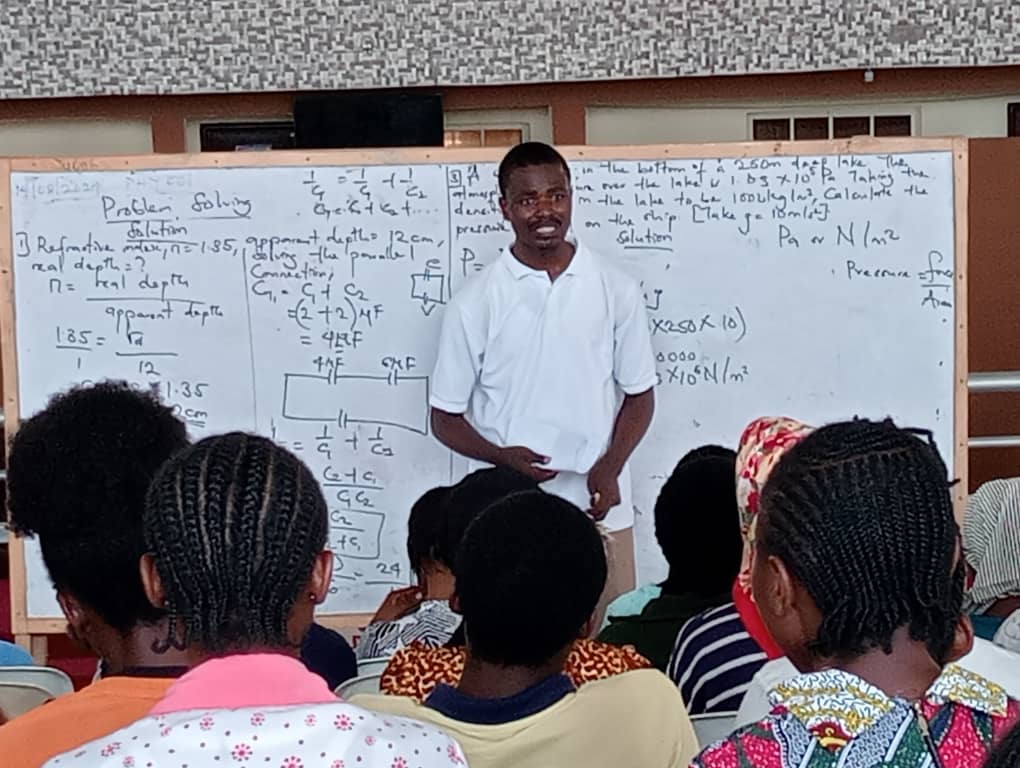 14/08/2024 PHY 001
Problem Solving
Solution
1] Refractive index, n = 1.35, apparent depth = 12cm,
real depth = ?
n = real depth
apparent depth
1.35 = rd
1 12
1.35
2cm
1/C₁ = 1/C₁ + 1/C₂
C₁ = C₁ + C₂ + ....
Solving the parallel
Connection,
C₁ = C₁ + C₂
= (2 + 2) μF
= 4μF
4μF 6μF
= 1/C₁ + 1/C₂
C₂ + C₁
C₁C₂
C₂
+ C₁
= 24
3] A in the bottom of a 250m deep lake. The
atmosp over the lake is 1.03 × 10⁵ Pa Taking the
densit in the lake to be 1000kg/m³, Calculate the
pressure on the ship. [Take g = 10m/s²]
Solution
Pa or N/m²
P =
Pressure = force
Area
g
×250×10)
0000
×10⁶N/m²